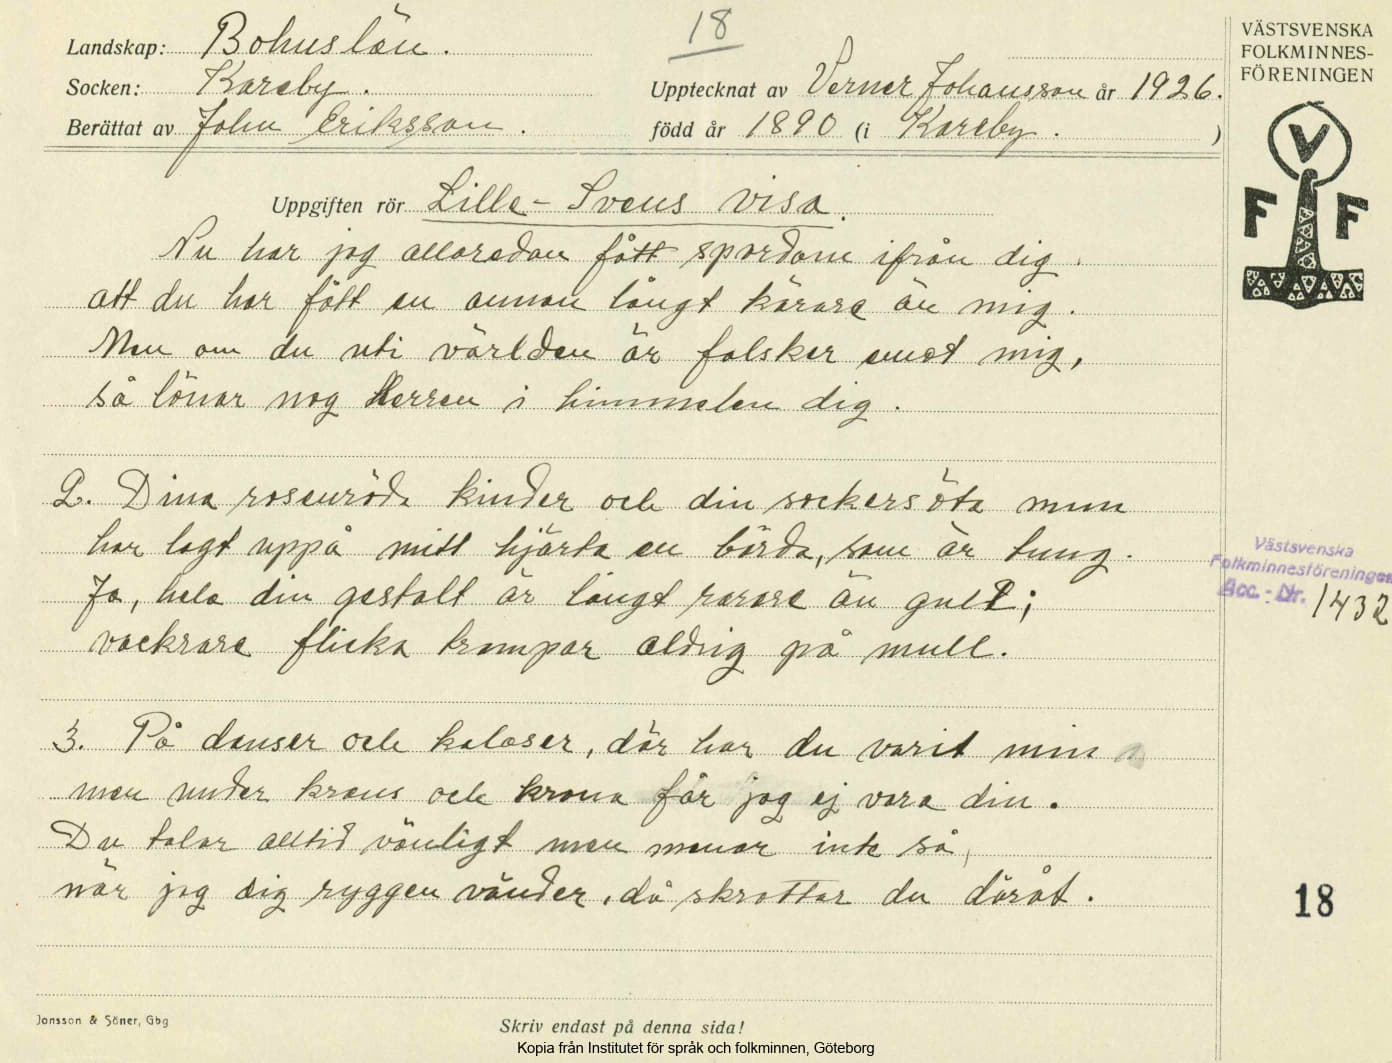 18
Landskap: Bohuslän.
Socken: Kareby.
Upptecknat av Verner Johansson år 1926.
Berättat av John Eriksson.
född år 1890 (i Kareby. )
VÄSTSVENSKA
FOLKMINNES-
FÖRENINGEN
V
F F
Uppgiften rör Lille-Svens visa.
Nu har jag allaredan fått spordom ifrån dig.
att du har fått en annan långt kärare än mig.
Men om du uti världen är falsker emot mig,
så lönar nog Herren i himmelen dig.
2. Dina rosenröda kinder och din sockersöta mun
har lagt uppå mitt hjärta en börda, som är tung.
Ja, hela din gestalt är långt rarare än gull;
vackrare flicka trampar aldrig på mull.
3. På danser och kalaser, där har du varit min
men under krans och krona får jag ej vara din.
Du talar alltid vänligt men menar inte så,
när jag dig ryggen vänder, då skrattar du däråt.
Västsvenska
Folkminnesföreningen
Acc.-Nr. 1432
18
Jonsson & Söner, Gbg
Skriv endast på denna sida!
Kopia från Institutet för språk och folkminnen, Göteborg